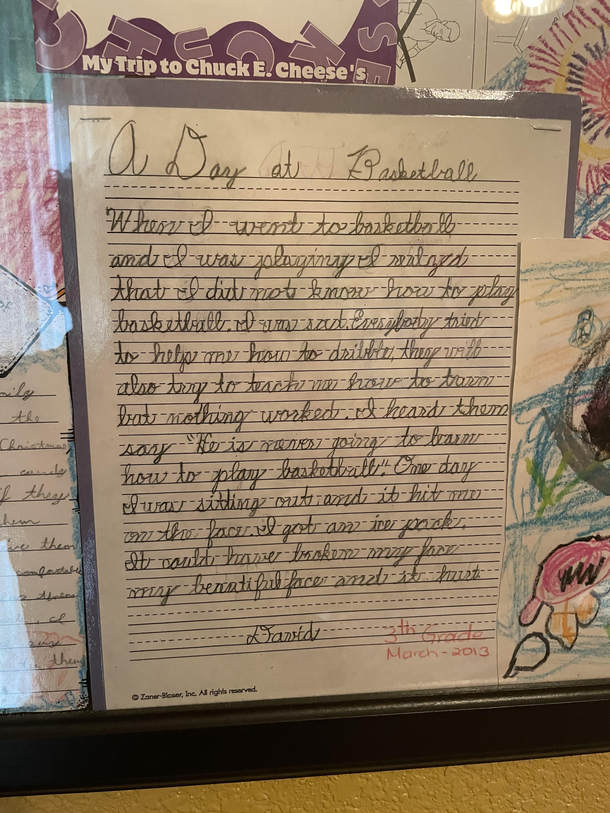 CHUCK E
My Trip to Chuck E. Cheese's
A Day at Basketball
When I went to basketball
and I was playing I realized
that I did not know how to play
basketball. I was sad. Everybody tried
to help me how to dribble, they will
also try to teach me how to turn
but nothing worked. I heard them
say "He is never going to learn
how to play basketball". One day
I was sitting out and it hit me
on the face. I got an ice pack.
It could have broken my face
my beautiful face and it hurt
David
3th Grade
March-2013
© Zaner-Bloser, Inc. All rights reserved.
the
Christmas
they
them